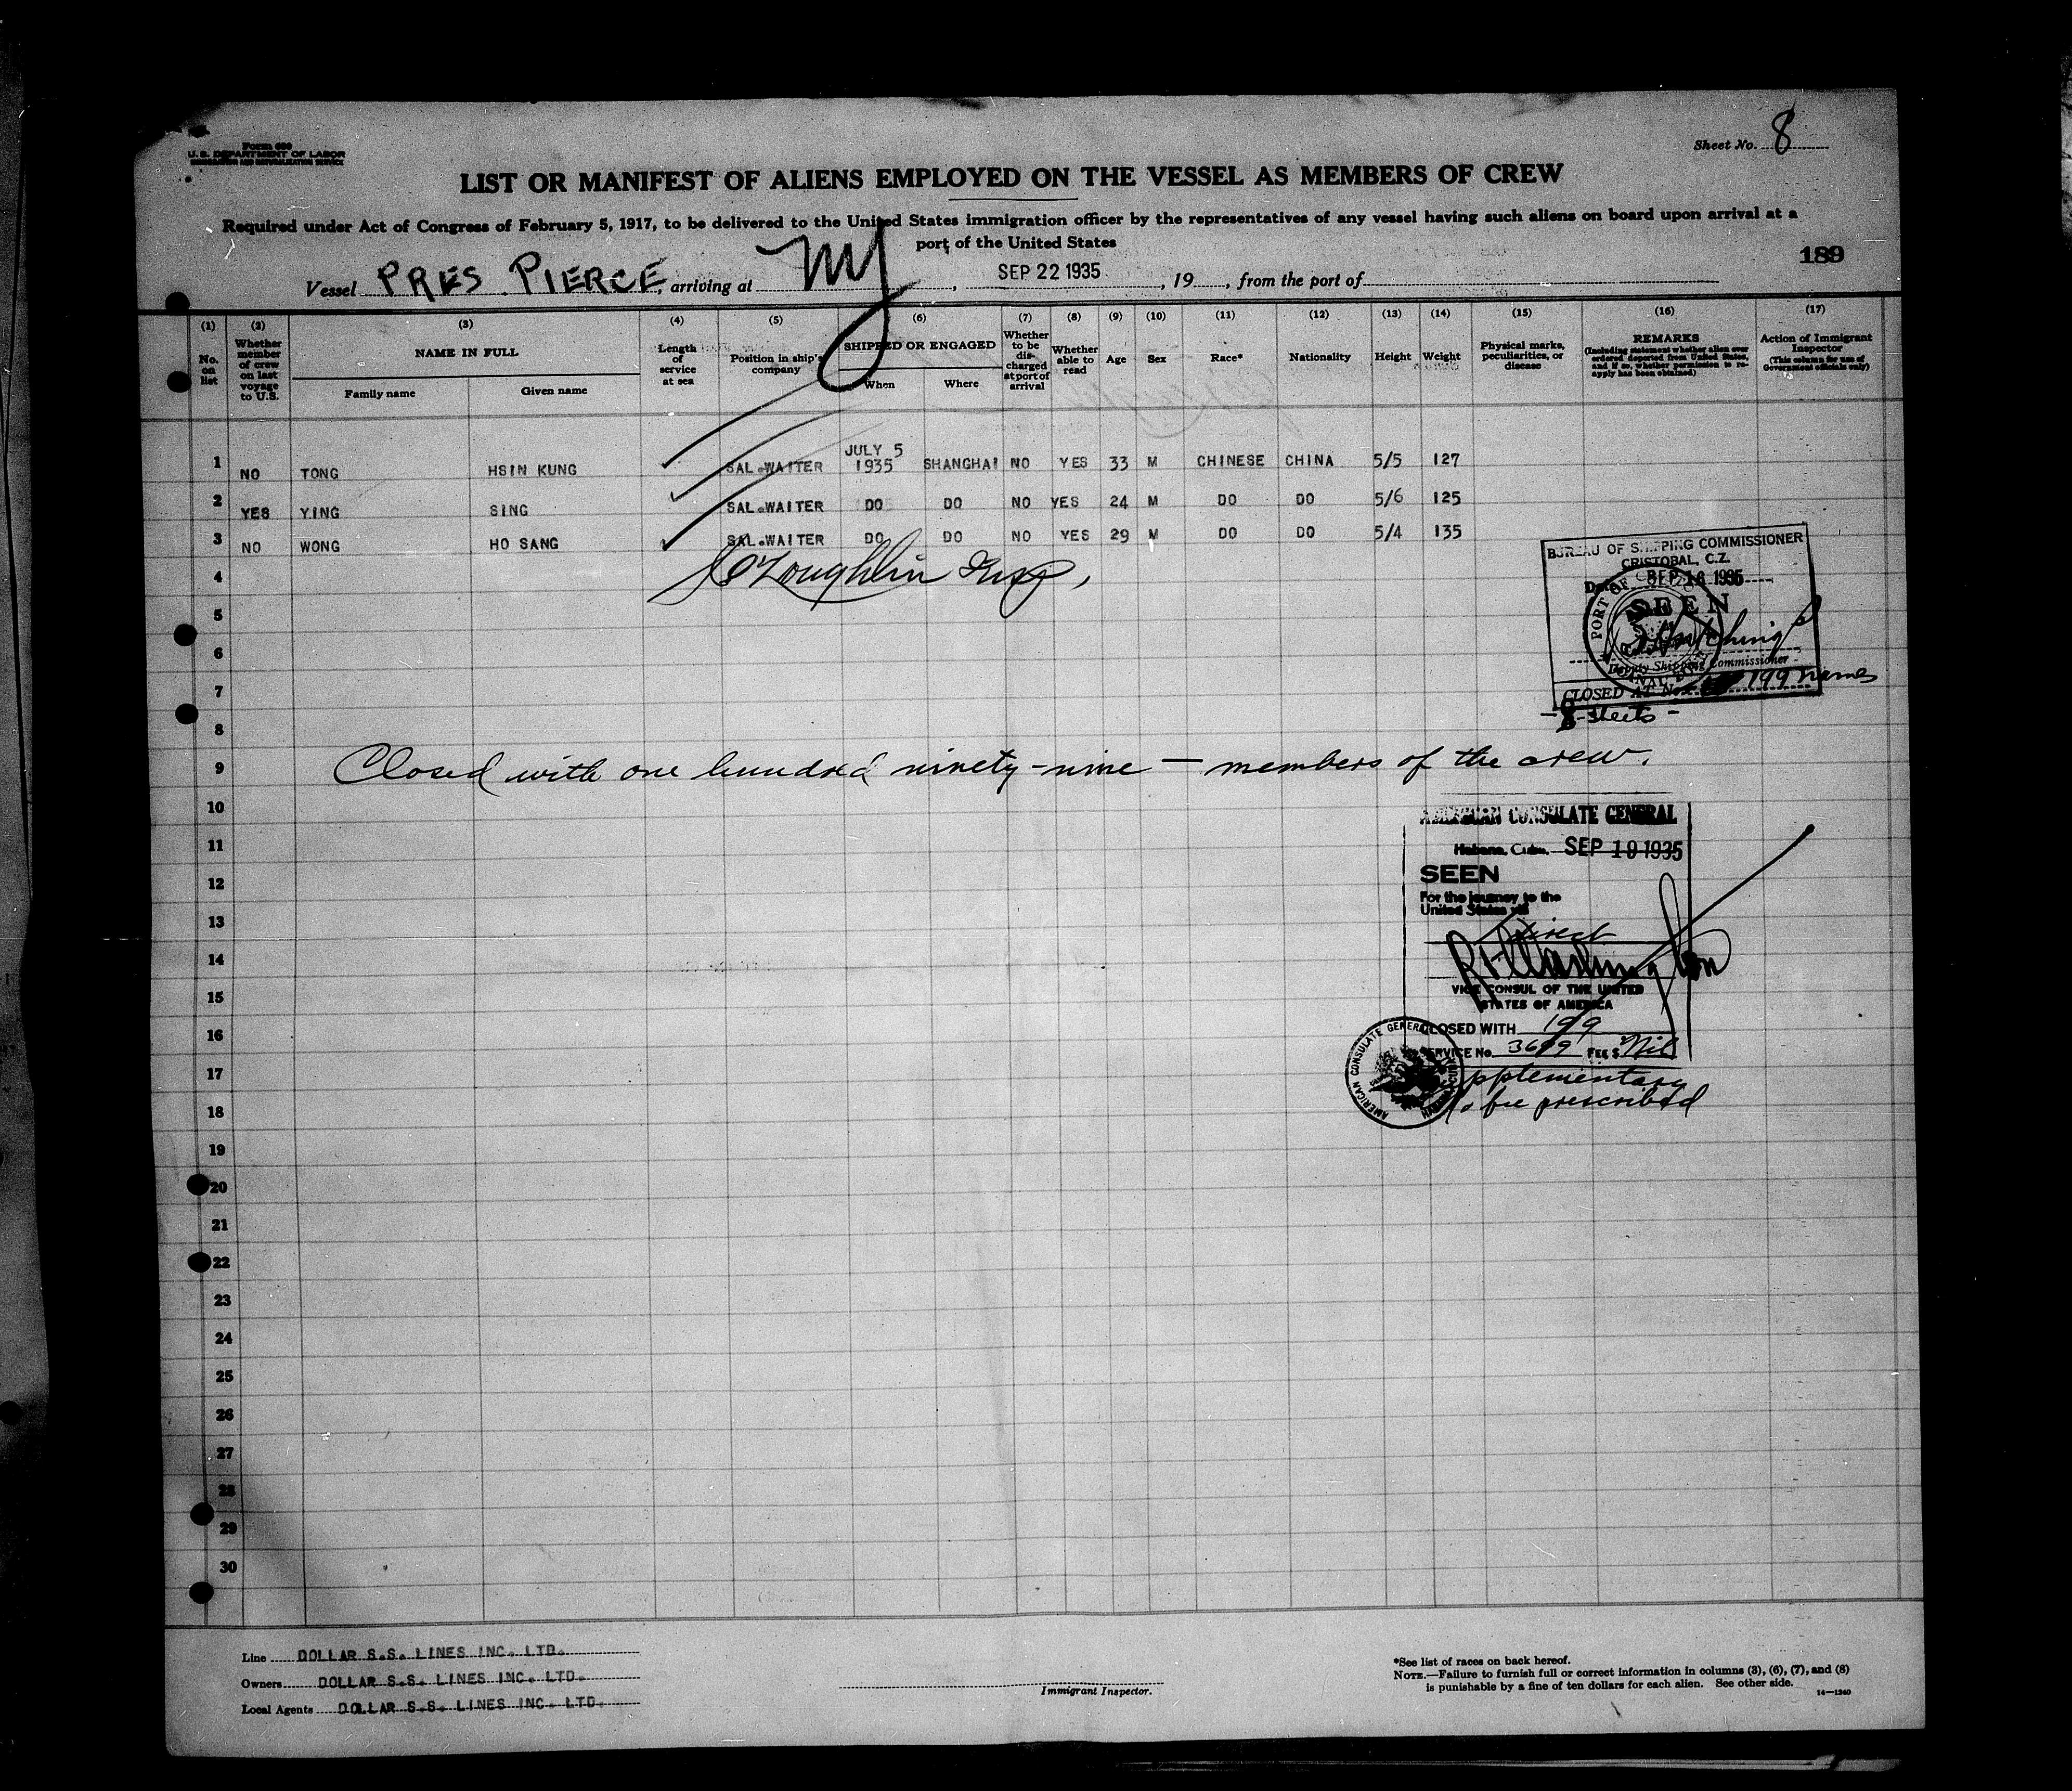 Form 680
U.S. DEPARTMENT OF LABOR
IMMIGRATION AND NATURALIZATION SERVICE
Sheet No. 8
LIST OR MANIFEST OF ALIENS EMPLOYED ON THE VESSEL AS MEMBERS OF CREW
Required under Act of Congress of February 5, 1917, to be delivered to the United States immigration officer by the representatives of any vessel having such aliens on board upon arrival at a
port of the United States
189
Vessel PRES PIERCE, arriving at NY, SEP 22 1935, 19, from the port of
(1) (2) (3) (4) (5) (6) (7) (8) (9) (10) (11) (12) (13) (14) (15) (16) (17)
No. on list
Whether member of crew on last voyage to U.S.
NAME IN FULL
Family name
Given name
Length of service at sea
Position in ship's company
SHIPPED OR ENGAGED
When
Where
Whether to be discharged at port of arrival
Whether able to read
Age
Sex
Race*
Nationality
Height
Weight
Physical marks, peculiarities, or disease
REMARKS
(Including statement whether alien ever ordered deported from United States, and if so, whether permission to reapply has been obtained)
Action of Immigrant Inspector
(This column for use of Government officials only)
1 NO TONG HSIN KUNG SAL.WAITER JULY 5 1935 SHANGHAI NO YES 33 M CHINESE CHINA 5/5 127
2 YES YING SING SAL.WAITER DO DO NO YES 24 M DO DO 5/6 125
3 NO WONG HO SANG SAL.WAITER DO DO NO YES 29 M DO DO 5/4 135
4
5
6
7
8
9
10
11
12
13
14
15
16
17
18
19
20
21
22
23
24
25
26
27
28
29
30
O'Loughlin Insp,
BUREAU OF SHIPPING COMMISSIONER
CRISTOBAL, C.Z.
Date SEP 16 1935
SEEN
Deputy Shipping Commissioner
CLOSED AT No. 199 names
-8-sheets-
Closed with one hundred ninety-nine - members of the crew.
AMERICAN CONSULATE GENERAL
Habana, Cuba. SEP 19 1935
SEEN
For the journey to the
United States via
direct
VICE CONSUL OF THE UNITED
STATES OF AMERICA
CLOSED WITH 199
SERVICE No. 3699 FEE $ Nil
no fee prescribed
AMERICAN CONSULATE GENERAL
Line DOLLAR S.S. LINES INC. LTD.
Owners DOLLAR S.S. LINES INC. LTD.
Local Agents DOLLAR S.S. LINES INC. LTD.
Immigrant Inspector.
*See list of races on back hereof.
NOTE.—Failure to furnish full or correct information in columns (3), (6), (7), and (8)
is punishable by a fine of ten dollars for each alien. See other side.
14—1240